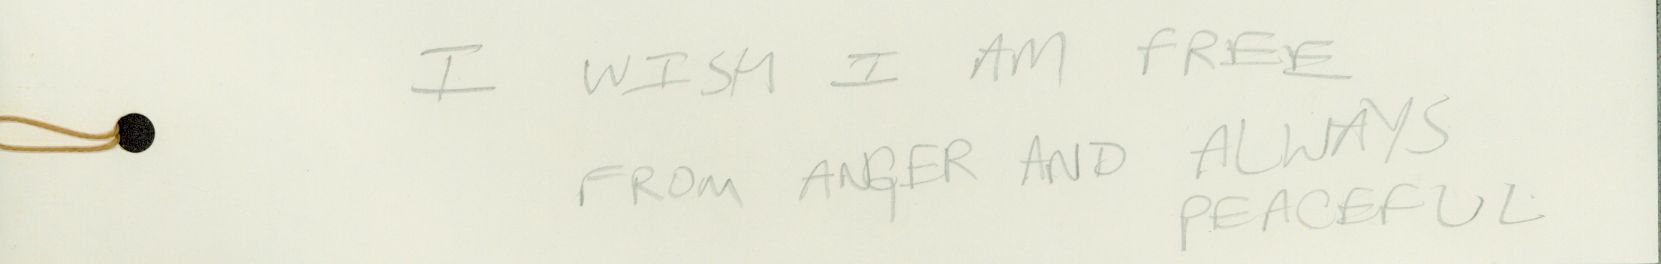 I WISH I AM FREE
FROM ANGER AND ALWAYS
PEACEFUL